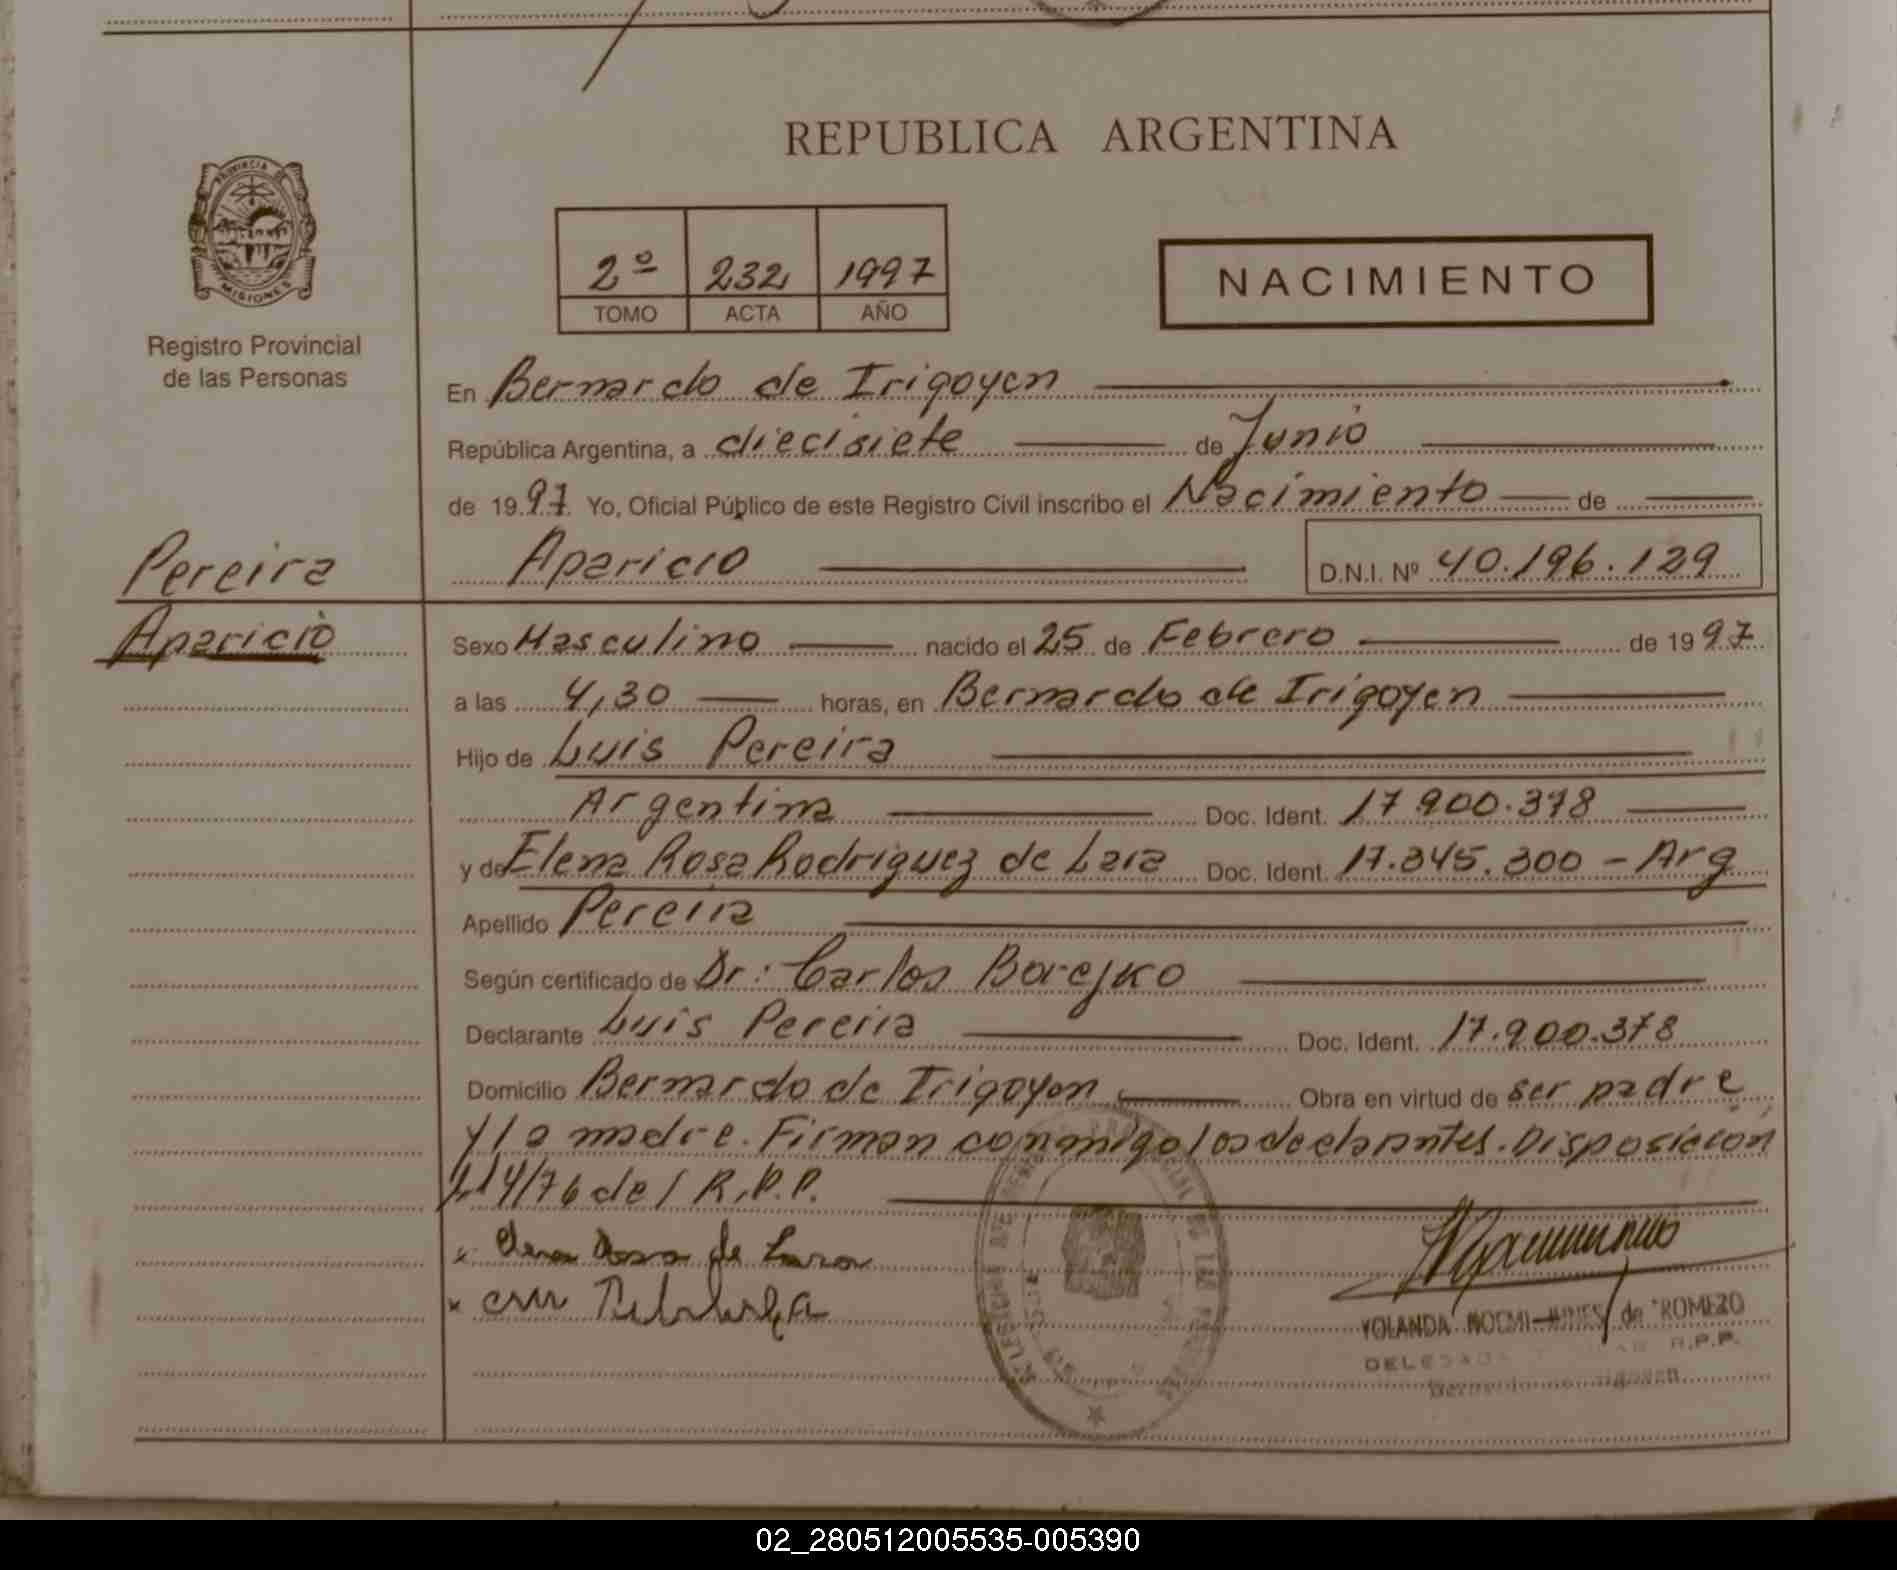 REPUBLICA ARGENTINA
PROVINCIA DE
MISIONES
Registro Provincial
de las Personas
2º 232 1997
TOMO ACTA AÑO
NACIMIENTO
En Bernardo de Irigoyen
República Argentina, a diecisiete de Junio
de 1997 Yo, Oficial Público de este Registro Civil inscribo el Nacimiento de
Pereira
Aparicio
Aparicio D.N.I. Nº 40.196.129
Sexo Masculino nacido el 25 de Febrero de 1997
a las 4,30 horas, en Bernardo de Irigoyen
Hijo de Luis Pereira
Argentina Doc. Ident. 17.900.378
y de Elena Rosa Rodriguez de Lara Doc. Ident. 17.345.300 - Arg
Apellido Pereira
Según certificado de Dr: Carlos
Declarante Luis Pereira Doc. Ident. 17.900.378
Domicilio Bernardo de Irigoyen Obra en virtud de ser padre
y la madre. Firman conmigo los declarantes. Disposición
114/76 del R.P.P.
Rosa de Lara
YOLANDA NOEMI de ROMERO
R.P.P.
02_280512005535-005390